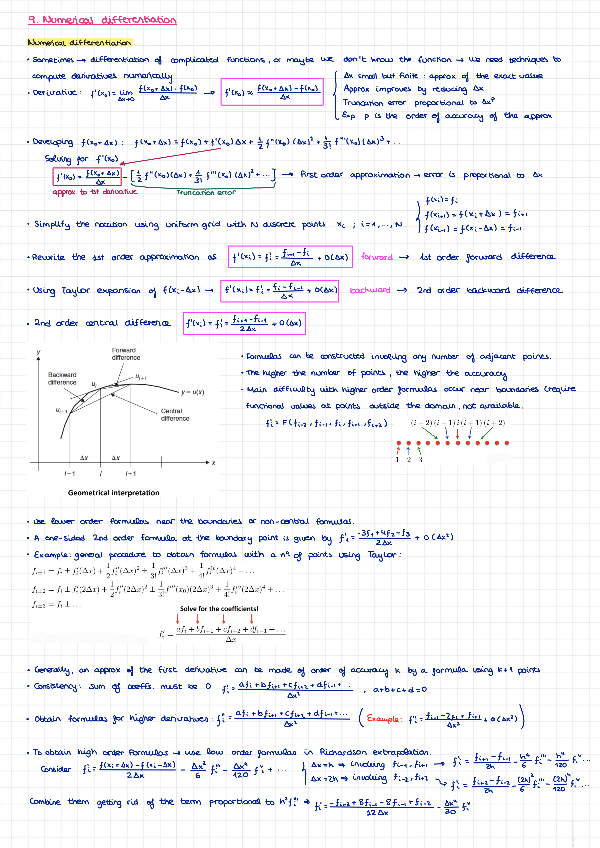 9. Numerical differentiation
Numerical differentiation
• Sometimes → differentiation of complicated functions, or maybe we don't know the function → we need techniques to
compute derivatives numerically
• Derivative: f'(x₀) = lim Δx→0 (f(x₀+Δx) - f(x₀))/Δx → f'(x₀) ≈ (f(x₀+Δx) - f(x₀))/Δx
Δx small but finite: approx of the exact value
Approx improves by reducing Δx
Truncation error proportional to Δxᵖ
Exp p is the order of accuracy of the approx
• Developing f(x₀+Δx): f(x₀+Δx) = f(x₀) + f'(x₀)Δx + 1/2 f''(x₀)(Δx)² + 1/3! f'''(x₀)(Δx)³ + ...
Solving for f'(x₀)
f'(x₀) = f(x₀+Δx)/Δx - [1/2 f''(x₀)(Δx) + 1/3! f'''(x₀)(Δx)² + ...] → First order approximation → error is proportional to Δx
approx to 1st derivative
Truncation error
• Simplify the notation using uniform grid with N discrete points xᵢ ; i=1,...,N
f(xᵢ) = fᵢ
f(xᵢ₊₁) = f(xᵢ+Δx) = fᵢ₊₁
f(xᵢ₋₁) = f(xᵢ-Δx) = fᵢ₋₁
• Rewrite the 1st order approximation as f'(xᵢ) = fᵢ' = (fᵢ₊₁ - fᵢ)/Δx + O(Δx) forward → 1st order forward difference
• Using Taylor expansion of f(xᵢ-Δx) → f'(xᵢ) = fᵢ' = (fᵢ - fᵢ₋₁)/Δx + O(Δx) backward → 2nd order backward difference
• 2nd order central difference f'(xᵢ) = fᵢ' = (fᵢ₊₁ - fᵢ₋₁)/2Δx + O(Δx)
y
Forward difference
Backward difference
uᵢ
uᵢ₊₁
uᵢ₋₁
y = u(x)
Central difference
Δx Δx
x
i−1 i i−1
Geometrical interpretation
• Formulas can be constructed involving any number of adjacent points.
• The higher the number of points, the higher the accuracy
• Main difficulty with higher order formulas occur near boundaries (require
functional values at points outside the domain, not available.
fᵢ' = F(fᵢ₋₂, fᵢ₋₁, fᵢ, fᵢ₊₁, fᵢ₊₂)
(i − 2)(i − 1) i(i + 1)(i + 2)
1 2 3
• Use lower order formulas near the boundaries or non-central formulas.
• A one-sided 2nd order formula at the boundary point is given by f₁' = (-3f₁+4f₂-f₃)/2Δx + O(Δx²)
• Example: general procedure to obtain formulas with a nº of points using Taylor:
fᵢ±₁ = fᵢ ± fᵢ'(Δx) + 1/2 fᵢ''(Δx)² ± 1/3! fᵢ'''(Δx)³ + 1/4! fᵢⁱᵛ(Δx)⁴ ± ...
fᵢ±₂ = fᵢ ± fᵢ'(2Δx) + 1/2 fᵢ''(2Δx)² ± 1/3! f'''(x₀)(2Δx)³ + 1/4! fᵢ''(2Δx)⁴ + ...
fᵢ±₃ = fᵢ ± ...
Solve for the coefficients!
fᵢ' = (afᵢ + bfᵢ₊₁ + cfᵢ₊₂ + dfᵢ₋₁ + ...)/Δx
• Generally, an approx of the first derivative can be made of order of accuracy k by a formula using k+1 points
• Consistency: sum of coeffs. must be 0 fᵢ' = (afᵢ + bfᵢ₊₁ + cfᵢ₊₂ + dfᵢ₋₁ + ...)/Δx² , a+b+c+d=0
• Obtain formulas for higher derivatives: fᵢ'' = (afᵢ + bfᵢ₊₁ + cfᵢ₊₂ + dfᵢ₋₁ + ...)/Δx² (Example: fᵢ'' = (fᵢ₊₁ - 2fᵢ + fᵢ₋₁)/Δx² + O(Δx²))
• To obtain high order formulas → use low order formulas in Richardson extrapolation.
Consider fᵢ' = (f(xᵢ+Δx) - f(xᵢ-Δx))/2Δx - Δx²/6 fᵢ''' - Δx⁴/120 fᵢᵛ + ...
Δx=h ⇒ involving fᵢ₋₁, fᵢ₊₁ → fᵢ' = (fᵢ₊₁ - fᵢ₋₁)/2h - h²/6 fᵢ''' - h⁴/120 fᵢᵛ ...
Δx=2h ⇒ involving fᵢ₋₂, fᵢ₊₂ → fᵢ' = (fᵢ₊₂ - fᵢ₋₂)/2h - (2h)²/6 fᵢ''' - (2h)⁴/120 fᵢᵛ ...
Combine them getting rid of the term proportional to h²fᵢ''' ⇒ fᵢ' = (-fᵢ₊₂ + 8fᵢ₊₁ - 8fᵢ₋₁ + fᵢ₋₂)/12Δx - Δx⁴/30 fᵢᵛ